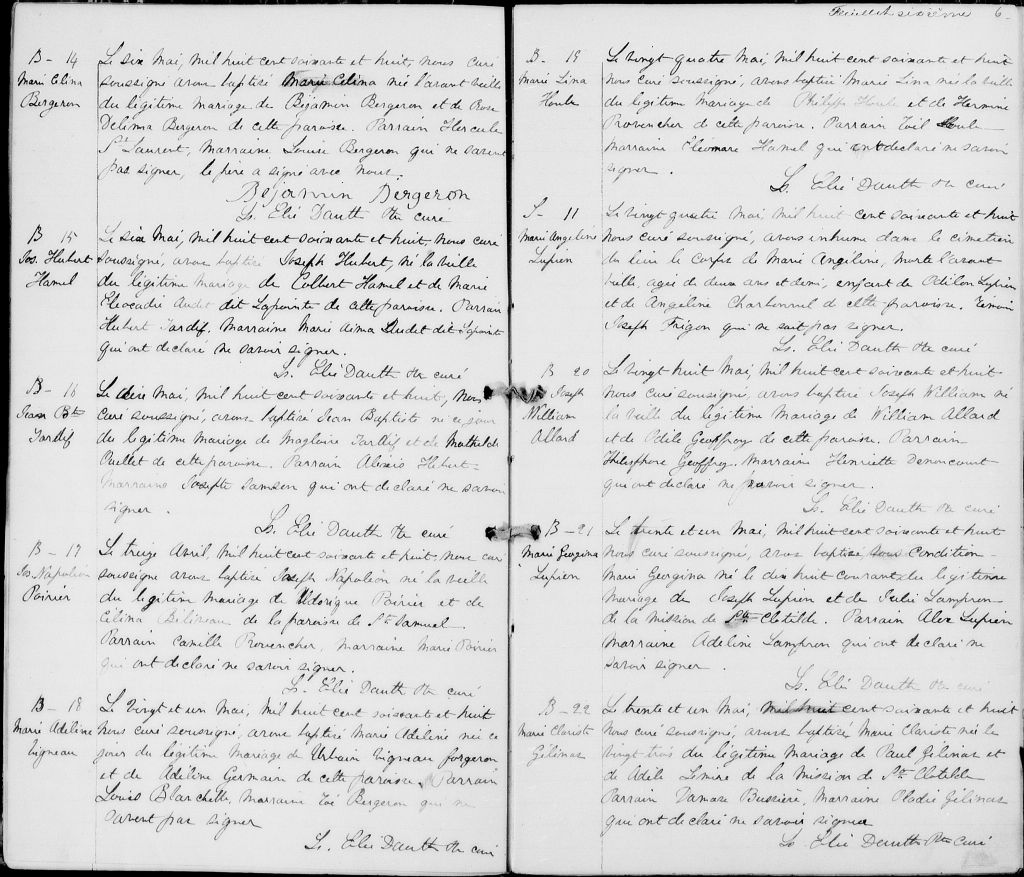 B - 14
Marie Celina
Bergeron
Le six Mai, mil huit cent soixante et huit, nous curé
soussigné avons baptisé Marie Celina né l'avant veille
du légitime mariage de Béjamin Bergeron et de Rose
Delima Bergeron de cette paroisse. Parrain Hercule
St Laurent, Marraine Louise Bergeron qui ne savent
pas signer, le père a signé avec nous.
Bejamin Bergeron
Ls. Elie Dauth Ptre curé
B 15
Jos. Hubert
Hamel
Le six Mai, mil huit cent soixante et huit, nous curé
soussigné, avons baptisé Joseph Hubert, né la veille
du légitime mariage de Colbert Hamel et de Marie
Eleocadie Audet dit Lapointe de cette paroisse. Parrain
Hubert Tardif. Marraine Marie Audet dit Lapointe
qui ont declaré ne savoir signer.
Ls. Elie Dauth Ptre curé
B - 16
Jean Bte
Tardif
Le dix Mai, mil huit cent soixante et huit, Nous
curé soussigné, avons baptisé Jean Baptiste né ce jour
du légitime mariage de Magloire Tardif et de Mathilde
Ouellet de cette paroisse. Parrain Alexis Hebert
Marraine Josephte Samson qui ont declaré ne savoir
signer.
Ls. Elie Dauth Ptre curé
B - 17
Jos. Napoléon
Poirier
Le treize Avril, mil huit cent soixante et huit, nous curé
soussigné avons baptisé Joseph Napoléon né la veille
du legitime mariage de Poirier et de
Célina Béliveau de la paroisse de St Samuel.
Parrain Camille Provencher, marraine Marie Poirier
qui ont declaré ne savoir signer.
Ls. Elie Dauth Ptre curé
B - 18
Marie Adeline
Vigneau
Le Vingt et un Mai, mil huit cent soixante et huit
Nous curé soussigné, avons baptisé Marie Adeline né ce
jour du légitime Mariage de Urbain Vigneau forgeron
et de Adéline Germain de cette paroisse. Parrain
Louis Blanchette, Marraine Zoé Bergeron qui ne
savent pas signer
Ls. Elie Dauth Ptre curé
Feuillet sixième 6
B - 19
Marie Lina
Houle
Le Vingt quatre Mai, Mil huit cent soixante et huit
Nous curé soussigné, avons baptisé Marie Lina né la veille
du légitime Mariage de Philippe Houle et de Hermine
Provencher de cette paroisse. Parrain Houle
Marraine Hamel qui ont declaré ne savoir
signer.
Ls. Elie Dauth Ptre curé
S - 11
Marie Angeline
Lupien
Le Vingt quatre Mai mil huit cent soixante et huit
Nous curé soussigné, avons inhumé dans le cimetière
du lieu le corps de Marie Angéline, morte l'avant
veille, agée de deux ans et demi, enfant de Odilon Lupien
et de Angéline Charbonneau de cette paroisse. Témoin
Joseph Frigon qui ne sait pas signer.
Ls. Elie Dauth Ptre curé
B 20
Joseph
William
Allard
Le Vingt huit Mai, Mil huit cent soixante et huit
Nous curé soussigné, avons baptisé Joseph William né
la veille du légitime Mariage de William Allard
et de Odile Geoffroy de cette paroisse. Parrain
Théléphore Geoffroy. Marraine Henriette Denoncourt
qui ont declaré ne savoir signer.
Ls. Elie Dauth Ptre curé
B - 21
Marie Georgina
Lupien
Le trente et un Mai, Mil huit cent soixante et huit
Nous curé soussigné, avons baptisé sous Condition
Marie Georgina né le dix huit courant du légitime
Mariage de Joseph Lupien et de Julie Lampron
de la Mission de Ste Clotilde. Parrain Alex Lupien
Marraine Adeline Lampron qui ont declaré ne
savoir signer.
Ls. Elie Dauth Ptre curé
B - 22
Marie Clariste
Gélinas
Le trente et un Mai, Mil huit cent soixante et huit
Nous curé soussigné, avons baptisé Marie Clariste née le
vingt trois du légitime Mariage de Paul Gélinas et
de Adile Lemire de la Mission de Ste Clotilde
Parrain Damase Bussière, Marraine Elodie Gélinas
qui ont declaré ne savoir signer
Ls Elie Dauth Ptre Curé